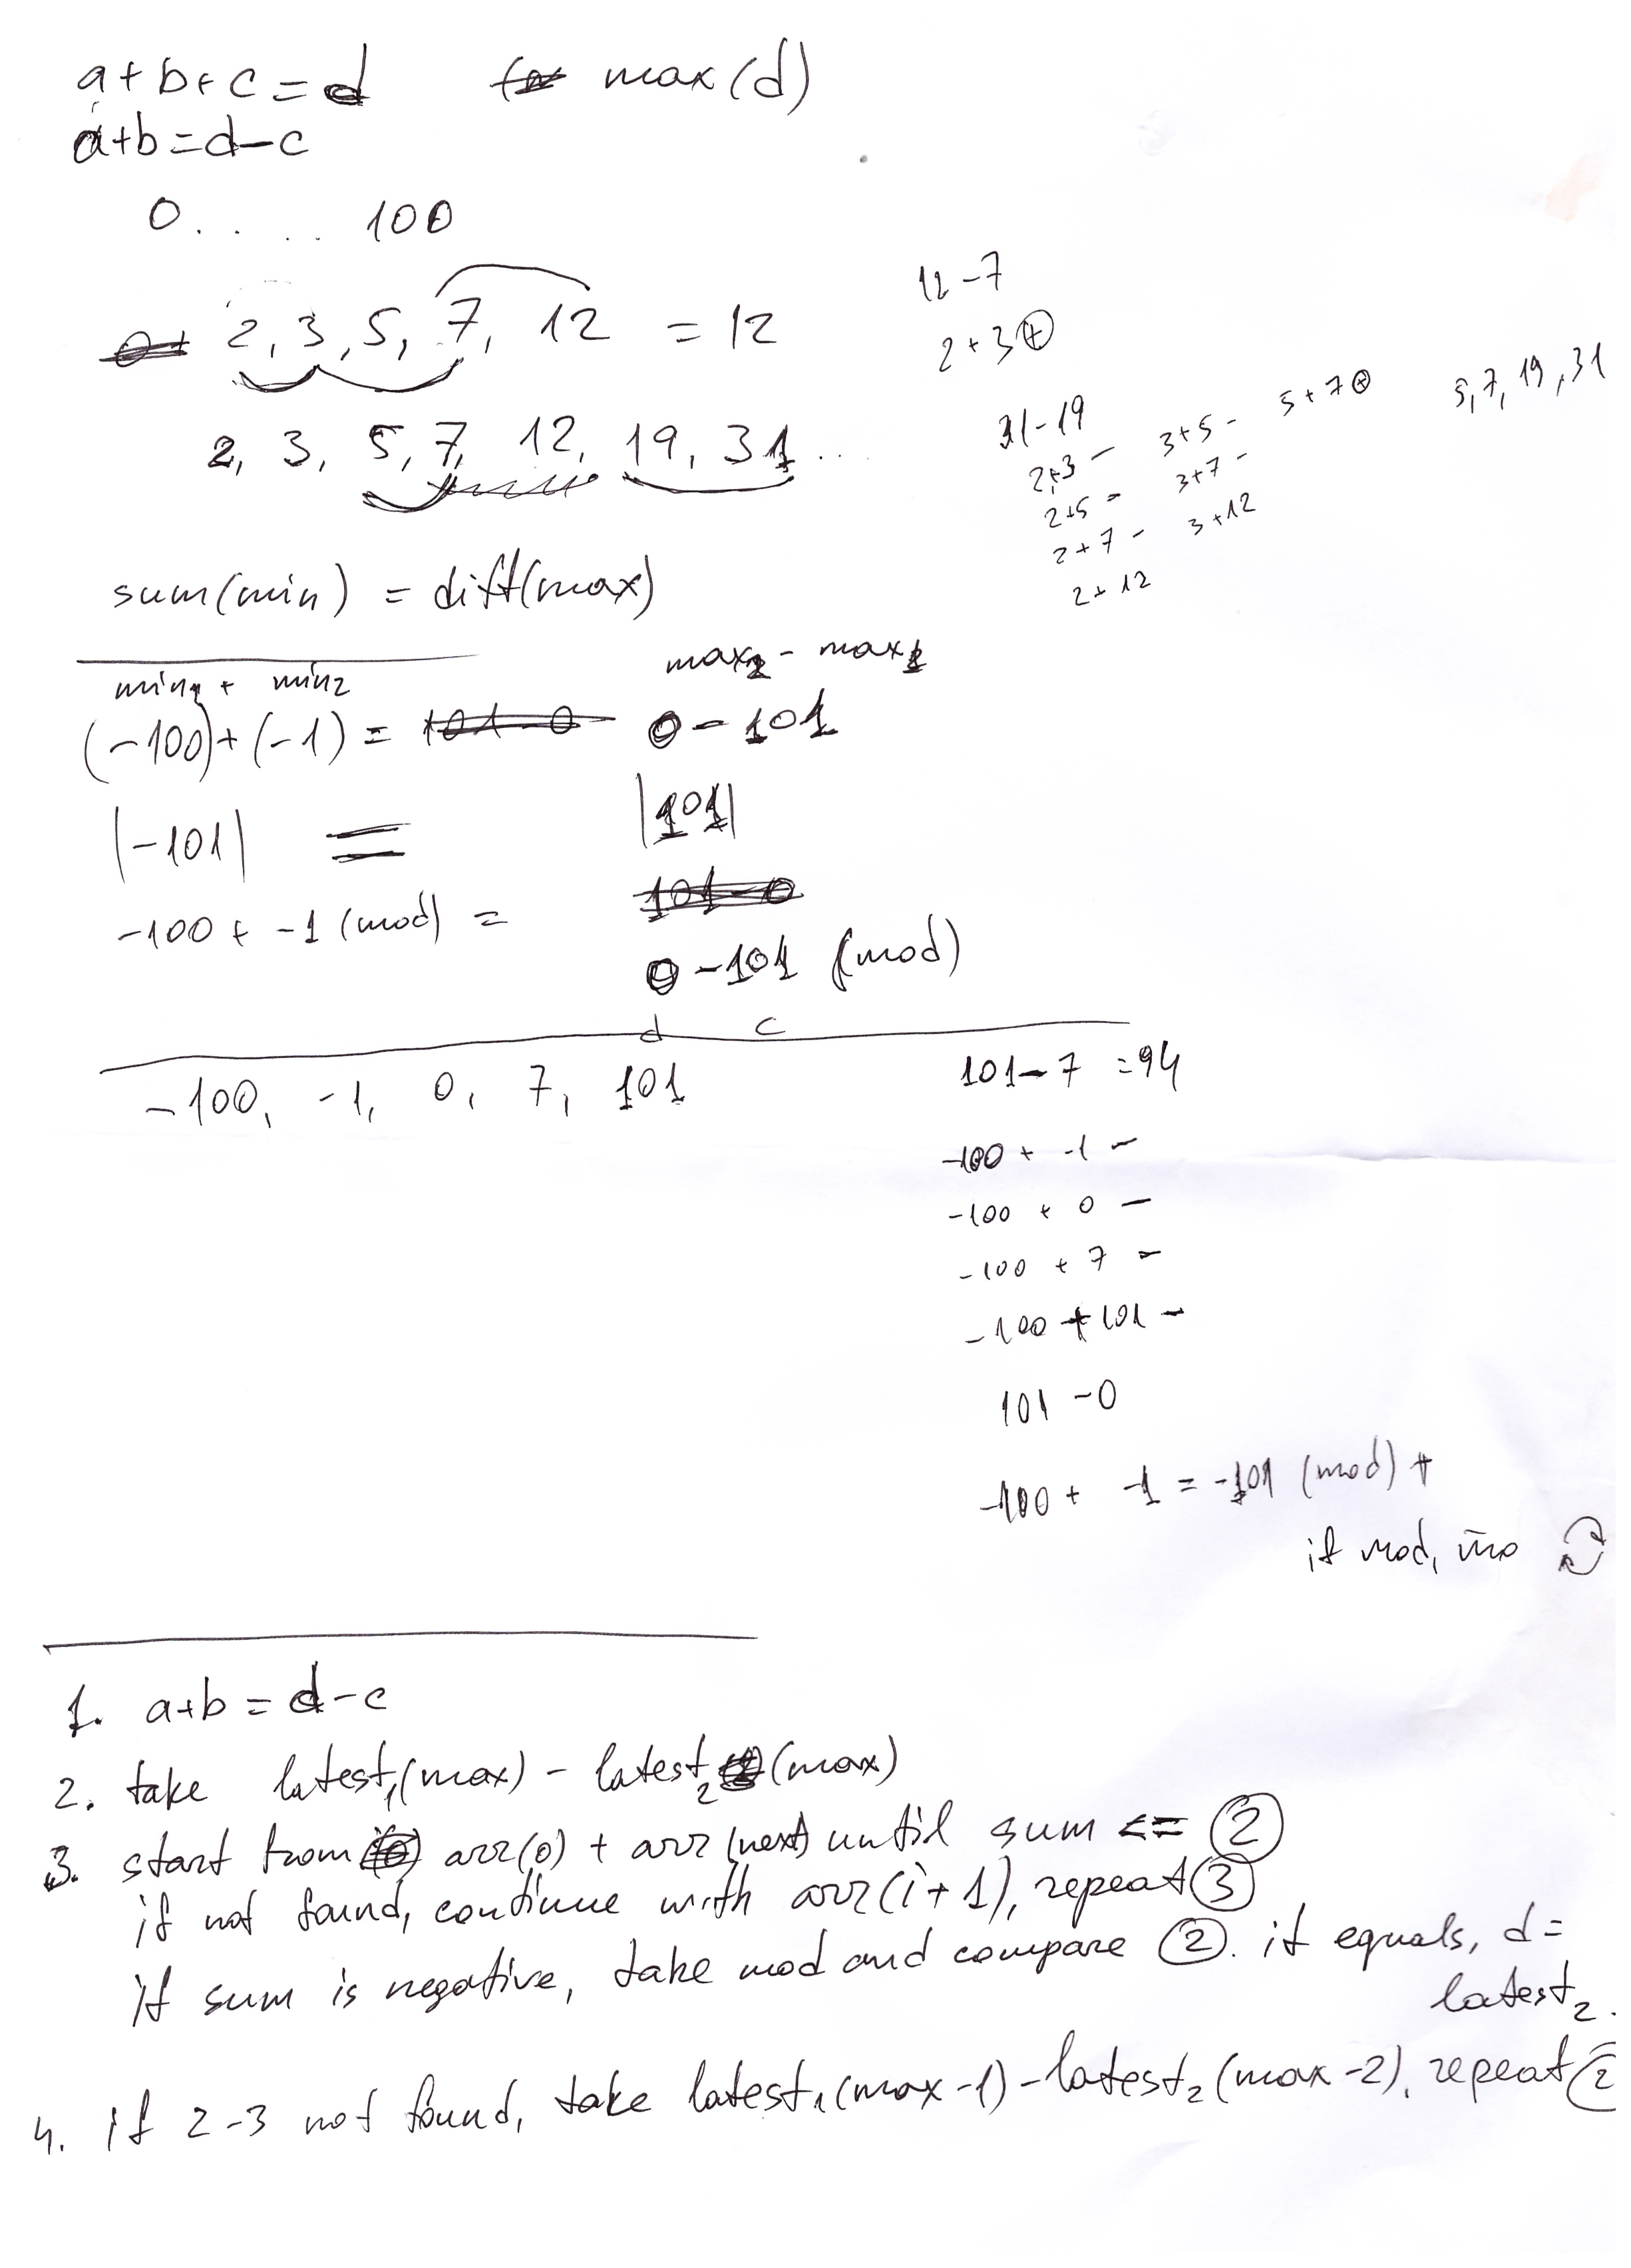 a+b+c=d max(d)
a+b=d-c
0. . . . . 100
12-7
2, 3, 5, 7, 12 = 12
2+3⊕
2, 3, 5, 7, 12, 19, 31...
31-19
5+7⊕
5, 7, 19, 31
2+3 - 3+5 -
2+5 - 3+7 -
2+7 - 3+12
2+12
sum(min) = diff(max)
min1 + min2 max2 - max1
(-100)+(-1) = 0-101
|-101| = |101|
-100 + -1 (mod) =
0-101 (mod)
d c
-100, -1, 0, 7, 101
101-7 =94
-100 + -1 -
-100 + 0 -
-100 + 7 -
-100 + 101 -
101 -0
-100 + -1 = -101 (mod) +
if mod,
1. a+b=d-c
2. take latest1(max) - latest2(max)
3. start from arr(0) + arr(next) until sum <= ②
if not found, continue with arr(i+1), repeat ③
if sum is negative, take mod and compare ②. if equals, d=
latest2.
4. if 2-3 not found, take latest1(max-1)-latest2(max-2), repeat ②